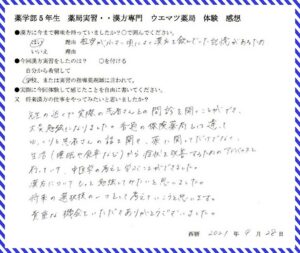 薬学部5年生 薬局実習・・漢方専門 ウエマツ薬局 体験 感想
●漢方に今まで興味を持っていましたか?○で示して下さい
はい 理由 祖母がリウマチによく漢方を飲んでいた記憶があるため
いいえ 理由
●今回漢方実習をしたのは? ○を付ける
自分から希望して
学校、または実習の指導薬剤師に言われて。
●実際に今回体験して感じたことを自由に書いてください。
又 将来漢方の仕事をやってみたいと思いましたか?
先生の近くで実際の患者さんとの問診を聞くことができ、
大変勉強になりました。普通の保険薬局と違って
ゆっくり患者さんの話を聞き、薬に関してだけでなく、
生活(睡眠や食事など)から症状を改善するためのアドバイスも
行っていて、中医学の考えを学ぶことができました。
漢方についてもっと勉強してみたいと思いました。
将来の選択肢の一つとして考えていこうと思います。
貴重な機会をいただきありがとうございました。
西暦 2021年 9月 28日